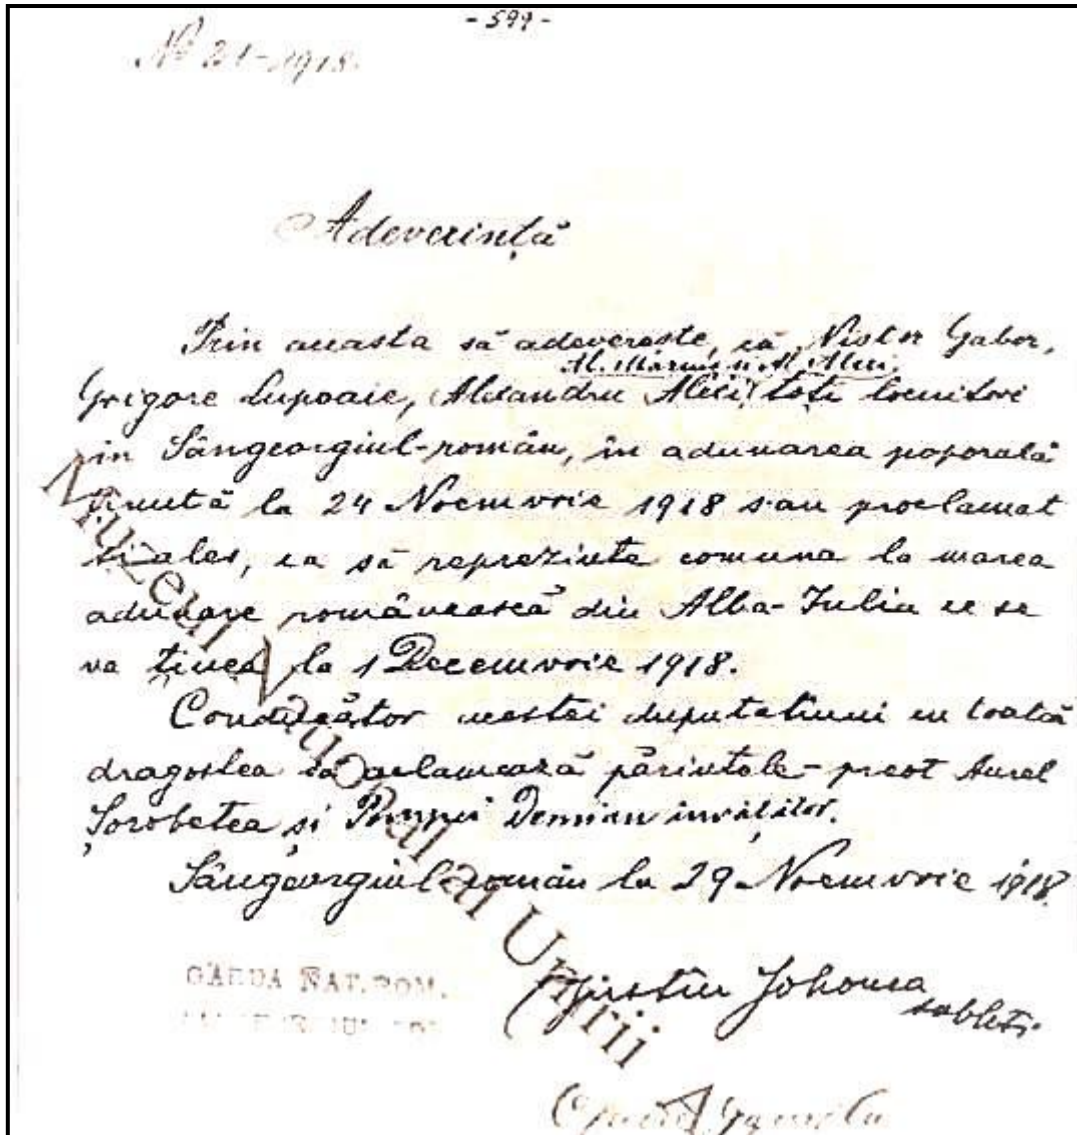 - 599 -
No 21-1918.
Adeverință
Prin aceasta să adeverește, că Nistor Gabor,
Al. Marină și Al. Aleci
Grigore Lupoaie, Alexandru Aleci, toți locuitori
in Sângeorgiul-român, în adunarea poporală
ținută la 24 Noemvrie 1918 sau proclamat
ales, ca să reprezinte comuna la marea
adunare românească din Alba-Iulia ce se
va ținea la 1 Decemvrie 1918.
Conducător acestei deputatiuni cu toată
dragostea să aclamează părintele-preot Aurel
Șorobetea și Pompei Demian invățător.
Sângeorgiul-român la 29 Noemvrie 1918.
GARDA NAT. ROM.
Justin Johonea
sublt.
Muzeul Național al Unirii